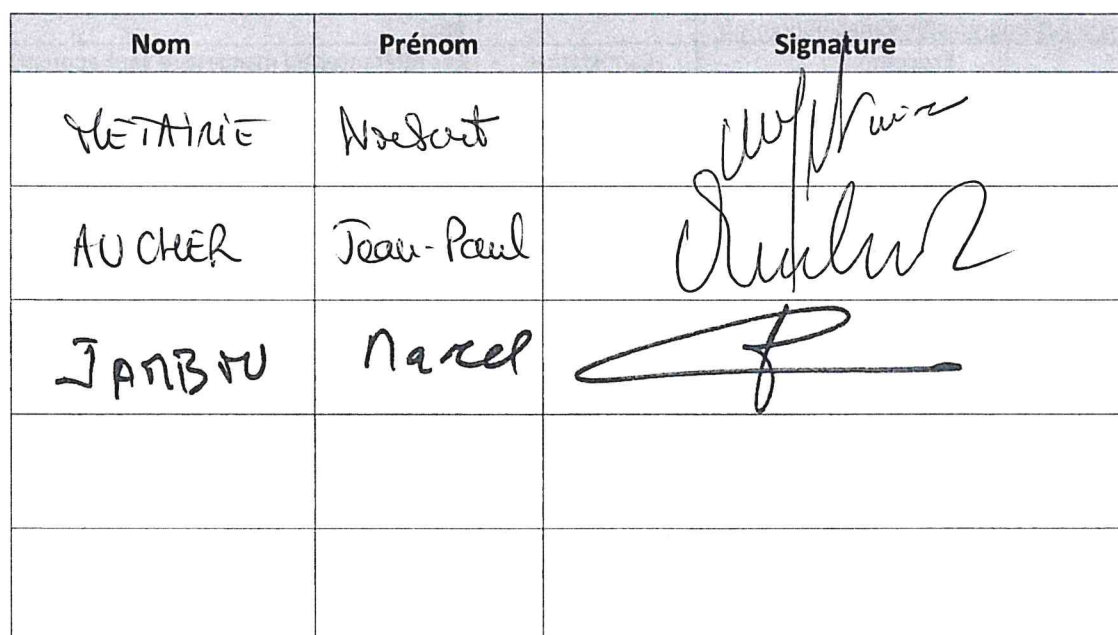 Nom Prénom Signature
METAIRIE Norbert
AUCHER Jean-Paul
Marcel